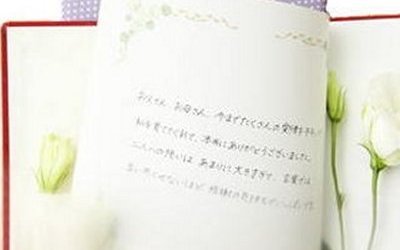 お父さん お母さん 今までたくさんの愛情を
私を育てて頂き、本当にありがとうございました。
二人への想いは あまりに大きすぎて、言葉では
言い表せないほど 感謝の気持ちで